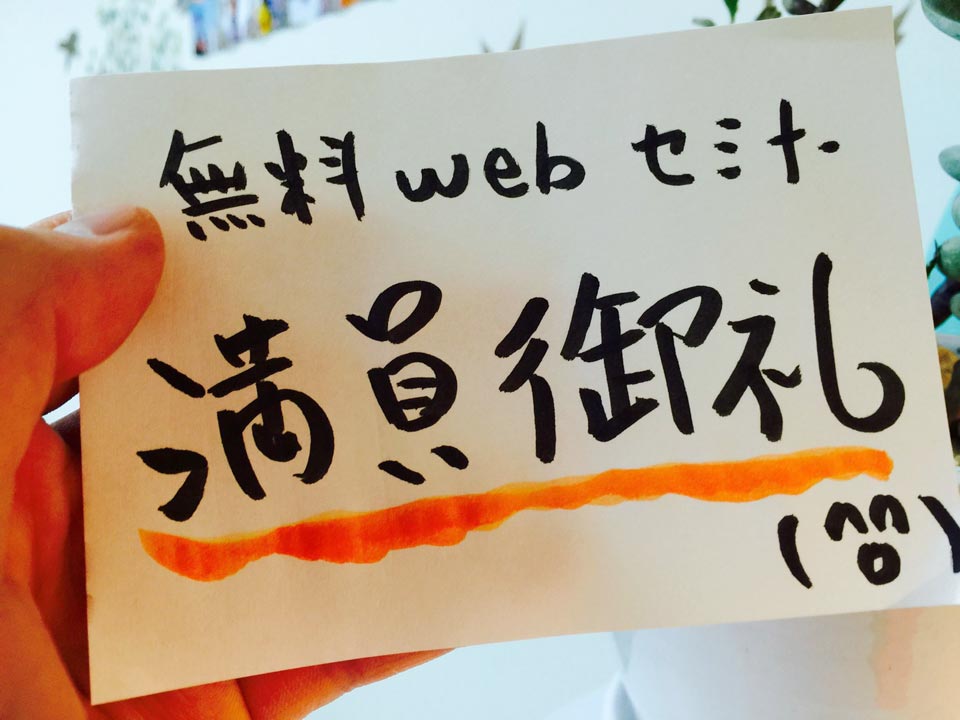 無料 web セミナー
満員御礼
(^o^)